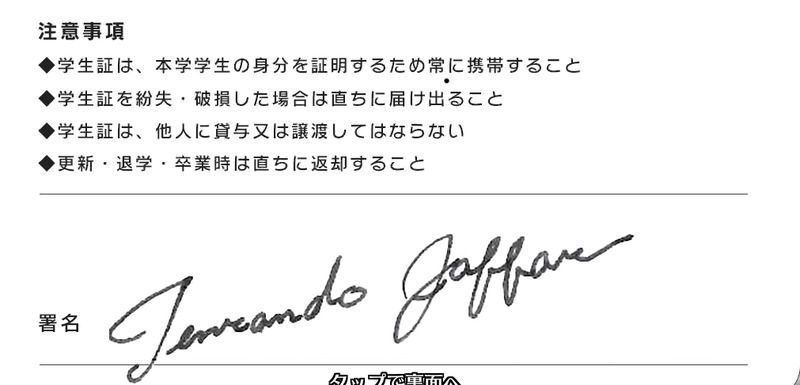 注意事項
◆学生証は、本学学生の身分を証明するため常に携帯すること
◆学生証を紛失・破損した場合は直ちに届け出ること
◆学生証は、他人に貸与又は譲渡してはならない
◆更新・退学・卒業時は直ちに返却すること
署名
タップで裏面へ